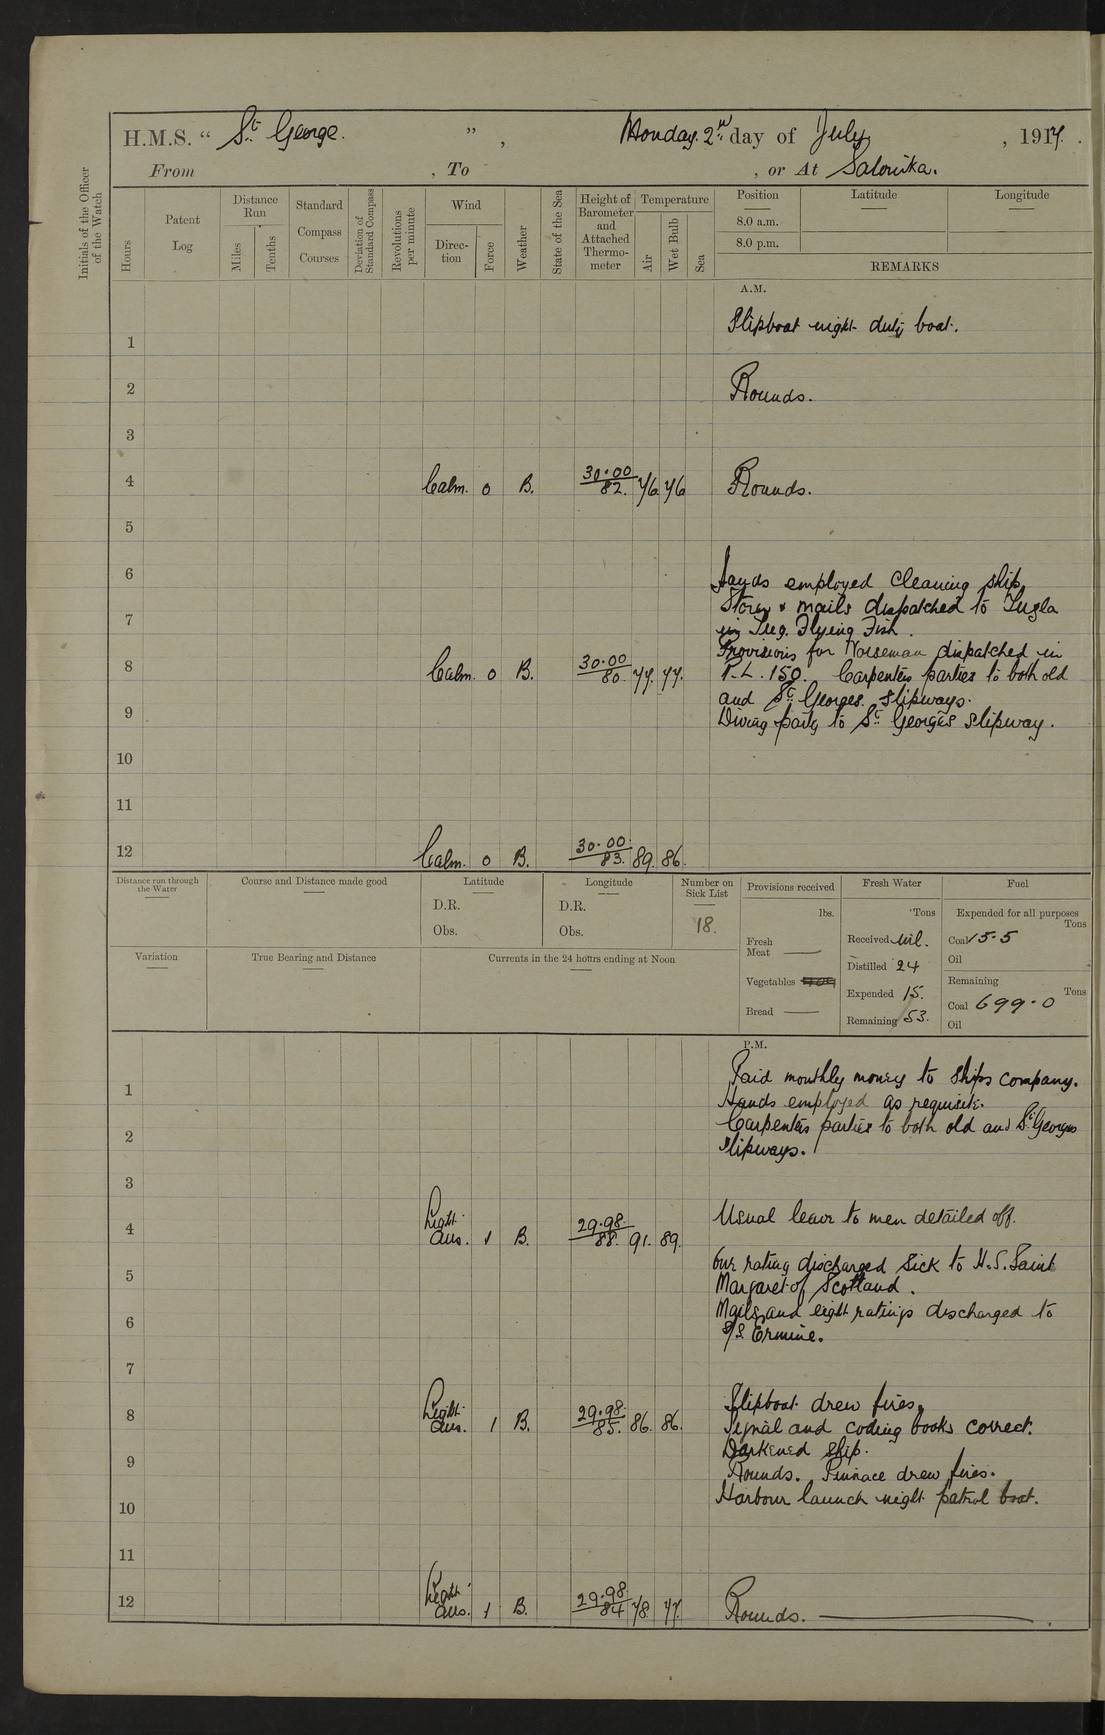 H.M.S. “ St George. ” , Monday. 2nd day of July , 1917.
From , To , or At Salonika.
Initials of the Officer of the Watch
Hours
Patent Log
Distance Run
Miles
Tenths
Standard Compass Courses
Deviation of Standard Compass
Revolutions per minute
Wind
Direc-tion
Force
Weather
State of the Sea
Height of Barometer and Attached Thermo-meter
Temperature
Air
Wet Bulb
Sea
Position Latitude Longitude
8.0 a.m.
8.0 p.m.
REMARKS
A.M.
1 Slipboat night duty boat.
2 Rounds.
3
4 Calm. 0 B. 30.00 82. 76 76 Rounds.
5
6 Hands employed cleaning ship,
Stores & mails dispatched to Tuzla
7 in Tug. Flying Fish.
Provisions for Norseman dispatched in
8 Calm. 0 B. 30.00 80. 77. 77. T.L. 150. Carpenters parties to both old
and St Georges. slipways.
9 Diving party to St George's slipway.
10
11
12 Calm. 0 B. 30.00. 83. 89. 86.
Distance run through the Water
Course and Distance made good
Latitude
D.R.
Obs.
Longitude
D.R.
Obs.
Number on Sick List
18.
Provisions received
lbs.
Fresh Meat ——
Vegetables
Bread ——
Fresh Water
Tons
Received nil.
Distilled 24
Expended 15.
Remaining 53.
Fuel
Expended for all purposes
Tons
Coal 15.5
Oil
Remaining
Tons
Coal 699.0
Oil
Variation
True Bearing and Distance
Currents in the 24 hours ending at Noon
P.M.
Paid monthly money to ships company.
1 Hands employed as requisite.
Carpenters parties to both old and St Georges
2 slipways.
3
4 Light airs. 1 B. 29.98. 88. 91. 89. Usual leave to men detailed off.
One rating discharged sick to H.S. Saint
5 Margaret of Scotland.
Mails, and eight ratings discharged to
6 S/S Ermine.
7
8 Light airs. 1 B. 29.98. 85. 86. 86. Slipboat drew fires,
Signal and coding books correct.
Darkened ship.
9 Rounds. Pinnace drew fires.
Harbour launch night patrol boat.
10
11
12 Light airs. 1 B. 29.98. 84 78. 77. Rounds. ——